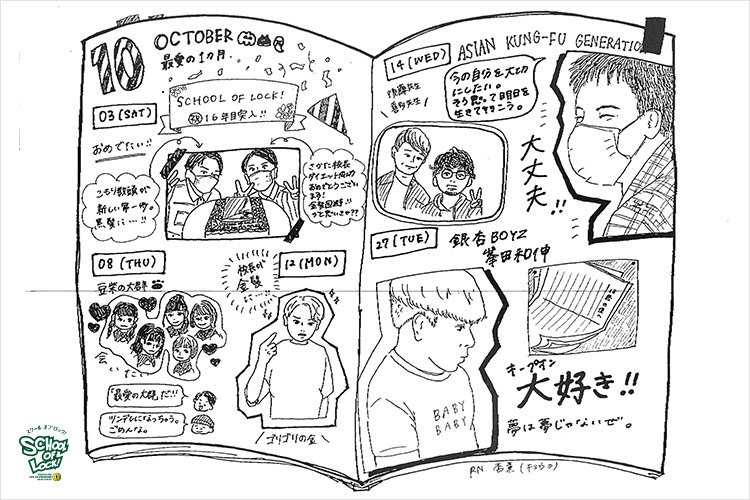 10 OCTOBER
最愛の1ヵ月.
03(SAT)
おめでたい!!
SCHOOL OF LOCK!
祝16年目突入!!
こもり教頭が
新しい第一歩。
黒髪に…!!
さかた校長
ダイエット成功
おめでとうござい
ます!
08(THU)
豆柴の大群
会いたい
「最愛の大群」だ!!
ツンデレになっちゃう。
ごめんな。
12(MON)
校長が
金髪
に…!!
ゴリゴリの金
14(WED)
ASIAN KUNG-FU GENERATION
後藤先生
喜多先生
今の自分を大切
にしたい。
そう思って明日を
生きてやろう。
大丈夫!!
27(TUE)
銀杏BOYZ
峯田和伸
BABY
BABY
オープオン
大好き!!
夢は夢じゃないぜ。
スクール オブ ロック!
SCHOOL
OF
LOCK!